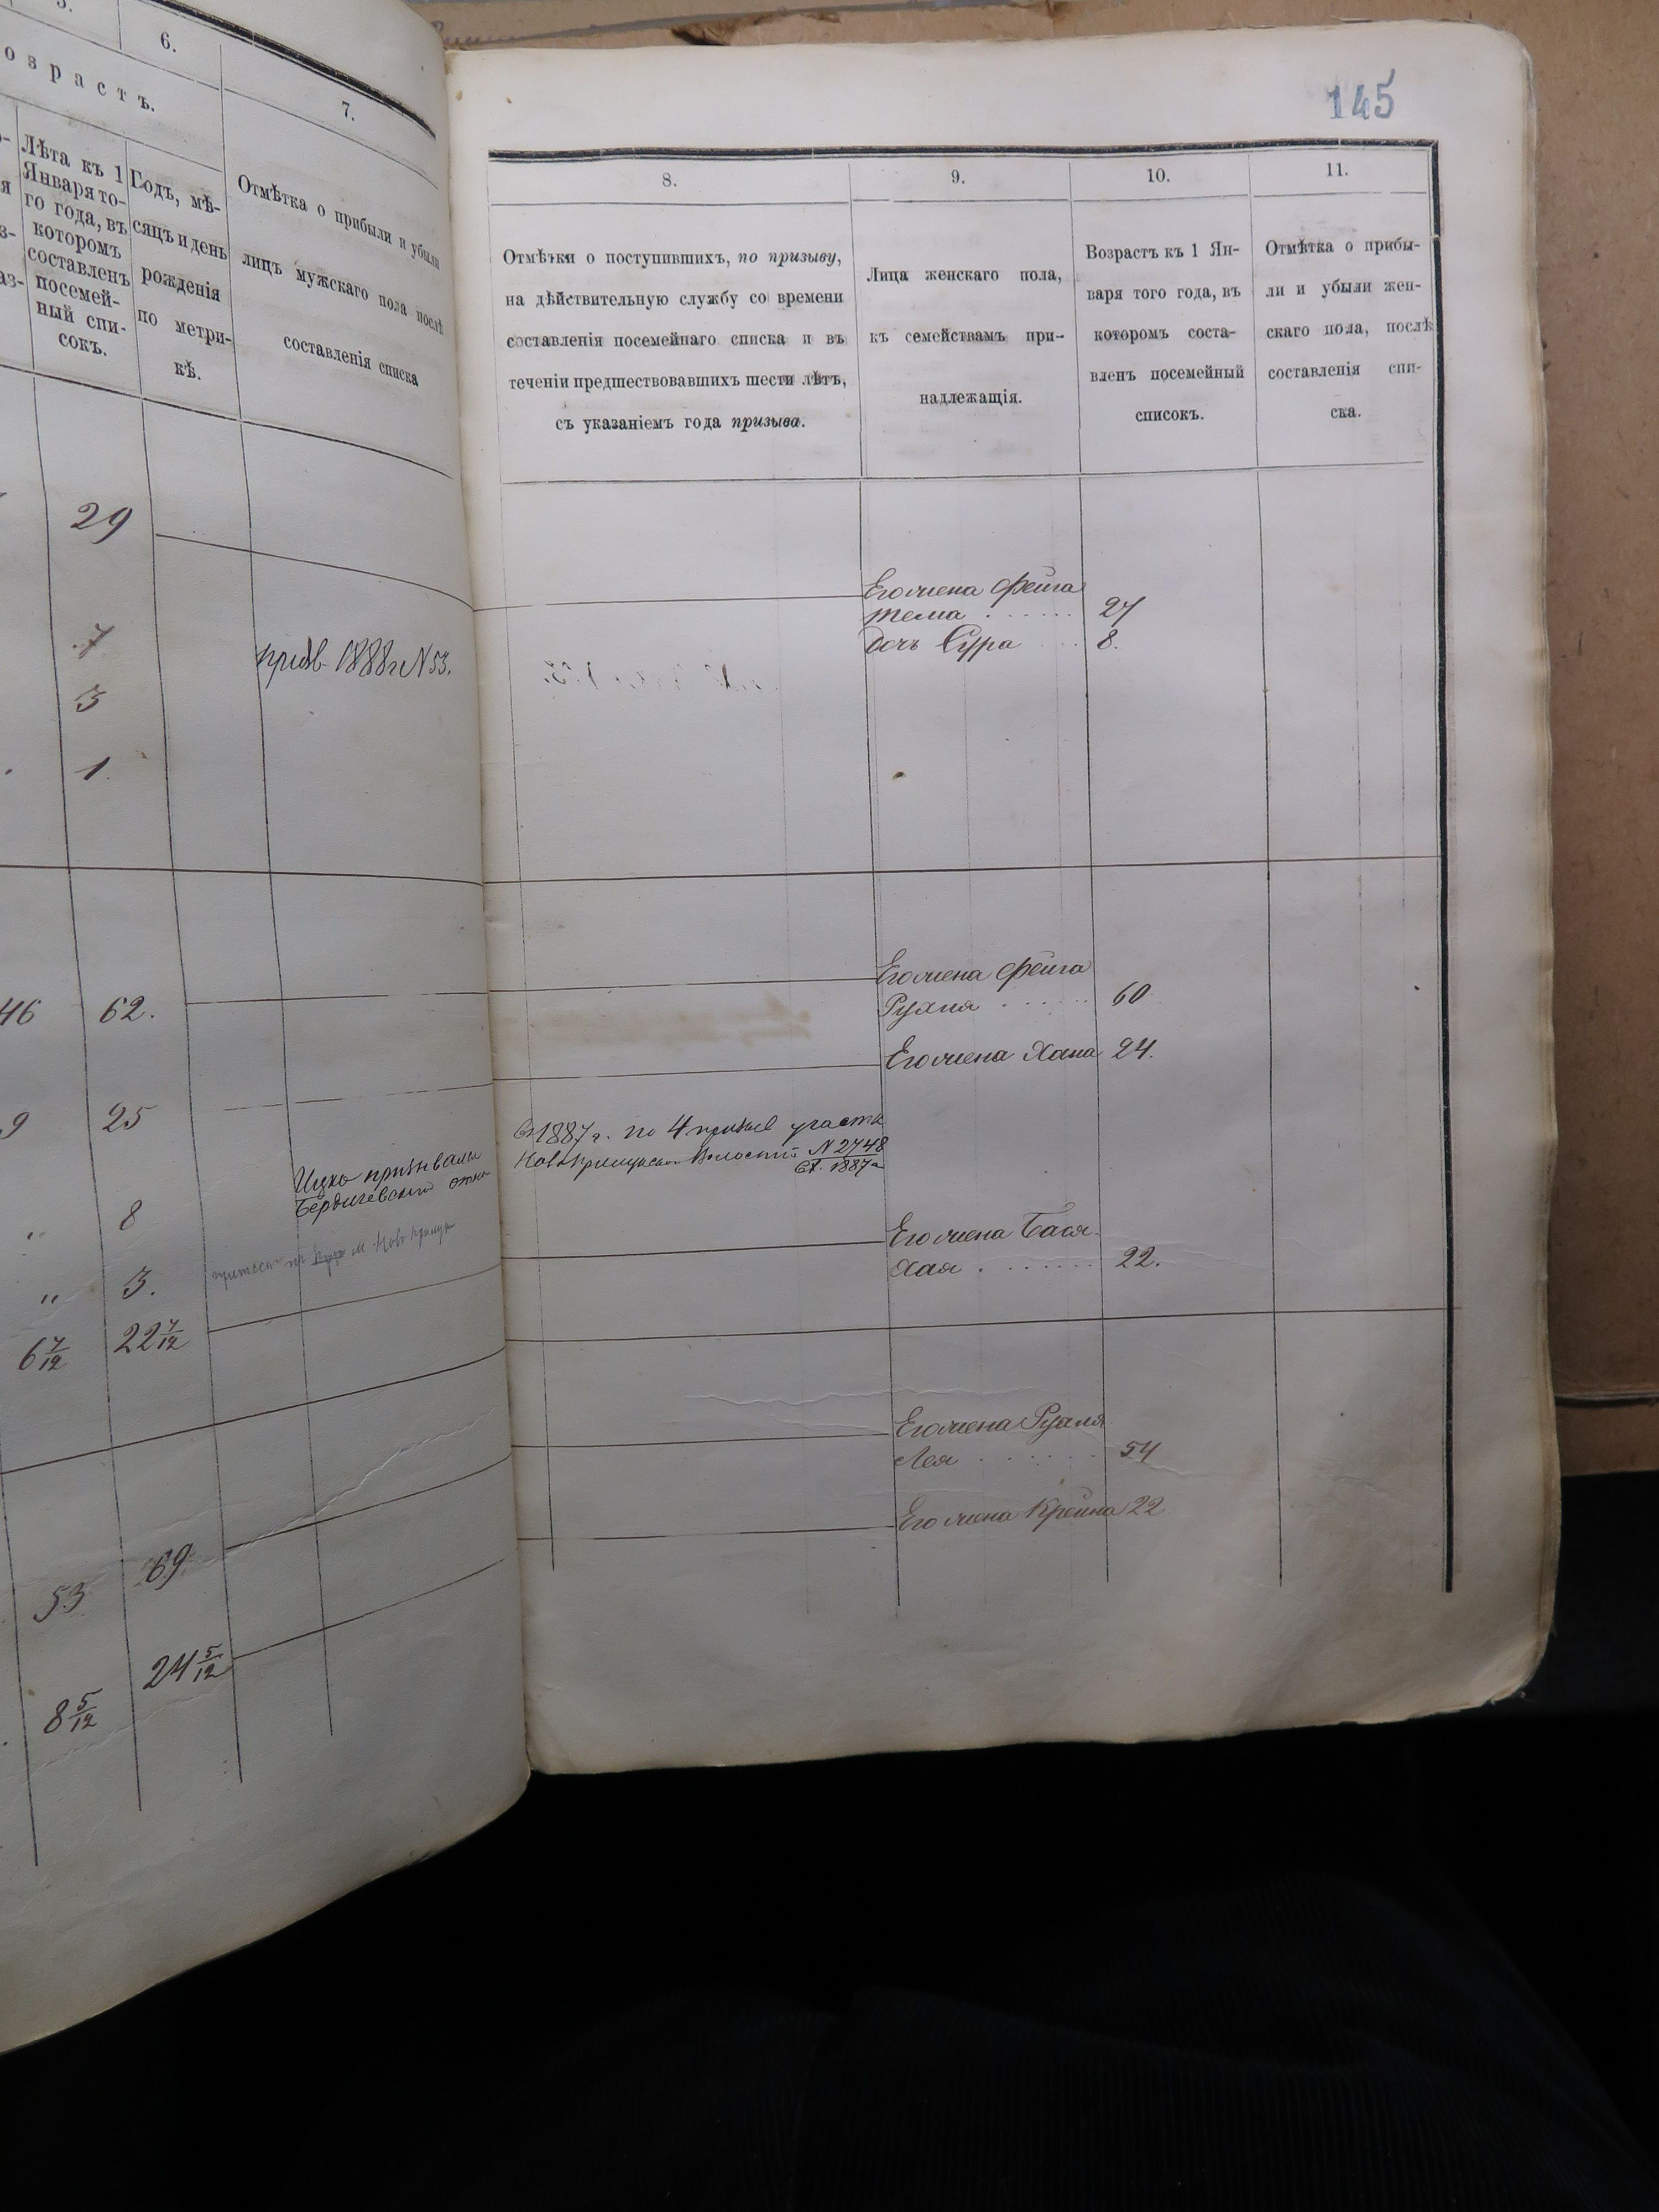 6.
7.
озрастъ.
Лѣта къ 1
Января то-
го года, въ
которомъ
составленъ
посемей-
ный спи-
сокъ.
Годъ, мѣ-
сяцъ и день
рожденія
по метри-
кѣ.
Отмѣтка о прибыли и убыли
лицъ мужскаго пола послѣ
составленія списка
29
7
призв. 1888 г. N 53.
3
1
46 62.
9 25
8
" 3.
6 7/12 22 7/12
53 69
8 5/12 24 5/12
145
8.
9.
10.
11.
Отмѣтки о поступившихъ, по призыву,
на дѣйствительную службу со времени
составленія посемейнаго списка и въ
теченіи предшествовавшихъ шести лѣтъ,
съ указаніемъ года призыва.
Лица женскаго пола,
къ семействамъ при-
надлежащія.
Возрастъ къ 1 Ян-
варя того года, въ
которомъ соста-
вленъ посемейный
списокъ.
Отмѣтка о прибы-
ли и убыли жен-
скаго пола, послѣ
составленія спи-
ска.
Его жена Фейга
Тема . . . . . . 27
Дочь Сура . . . 8.
Его жена Фейга
Рухля . . . . . . 60
Его жена Хана 24.
1887 г. по 4 призыв участк
N 2748
1887 г
Его жена Бася-
Хая . . . . . . . 22.
Его жена Рухля
Лея . . . . . . . 54
Его жена Крейна 22